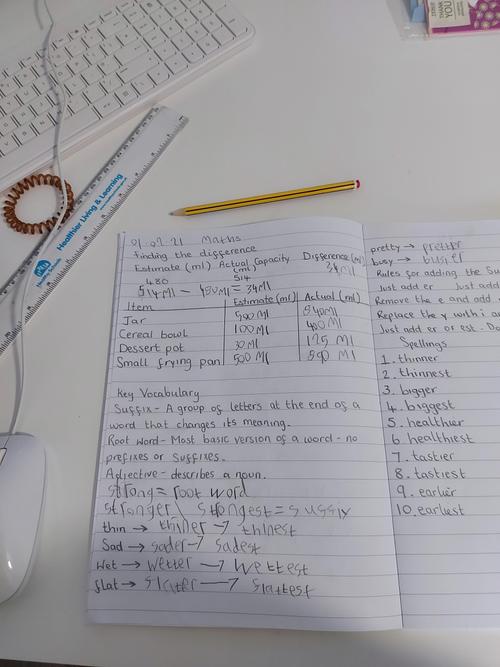 Healthier Living & Learning
01.02.21 Maths
Finding the difference
Estimate (ml) Actual Capacity (ml) Difference (ml)
480 514 34ml
514ml - 480ml = 34ml
Item Estimate (ml) Actual (ml)
Jar 500ml 540ml
Cereal bowl 100ml 400ml
Dessert pot 30ml 125ml
Small frying pan 500ml 590ml
Key Vocabulary
Suffix - A group of letters at the end of a
word that changes its meaning.
Root word - Most basic version of a word - no
prefixes or suffixes.
Adjective - describes a noun.
strong = root word
stronger \ strongest = sussix
thin → thinner → thinest
Sad → sader → sadest
Wet → wetter → wettest
flat → slatter → slattest
pretty → pretter
busy → busier
Rules for adding the Su
Just add er Just add
Remove the e and add
Replace the y with i a
Just add er or est - Do
Spellings
1. thinner
2. thinnest
3. bigger
4. biggest
5. healthier
6 healthiest
7. tastier
8. tastiest
9. earlier
10. earliest